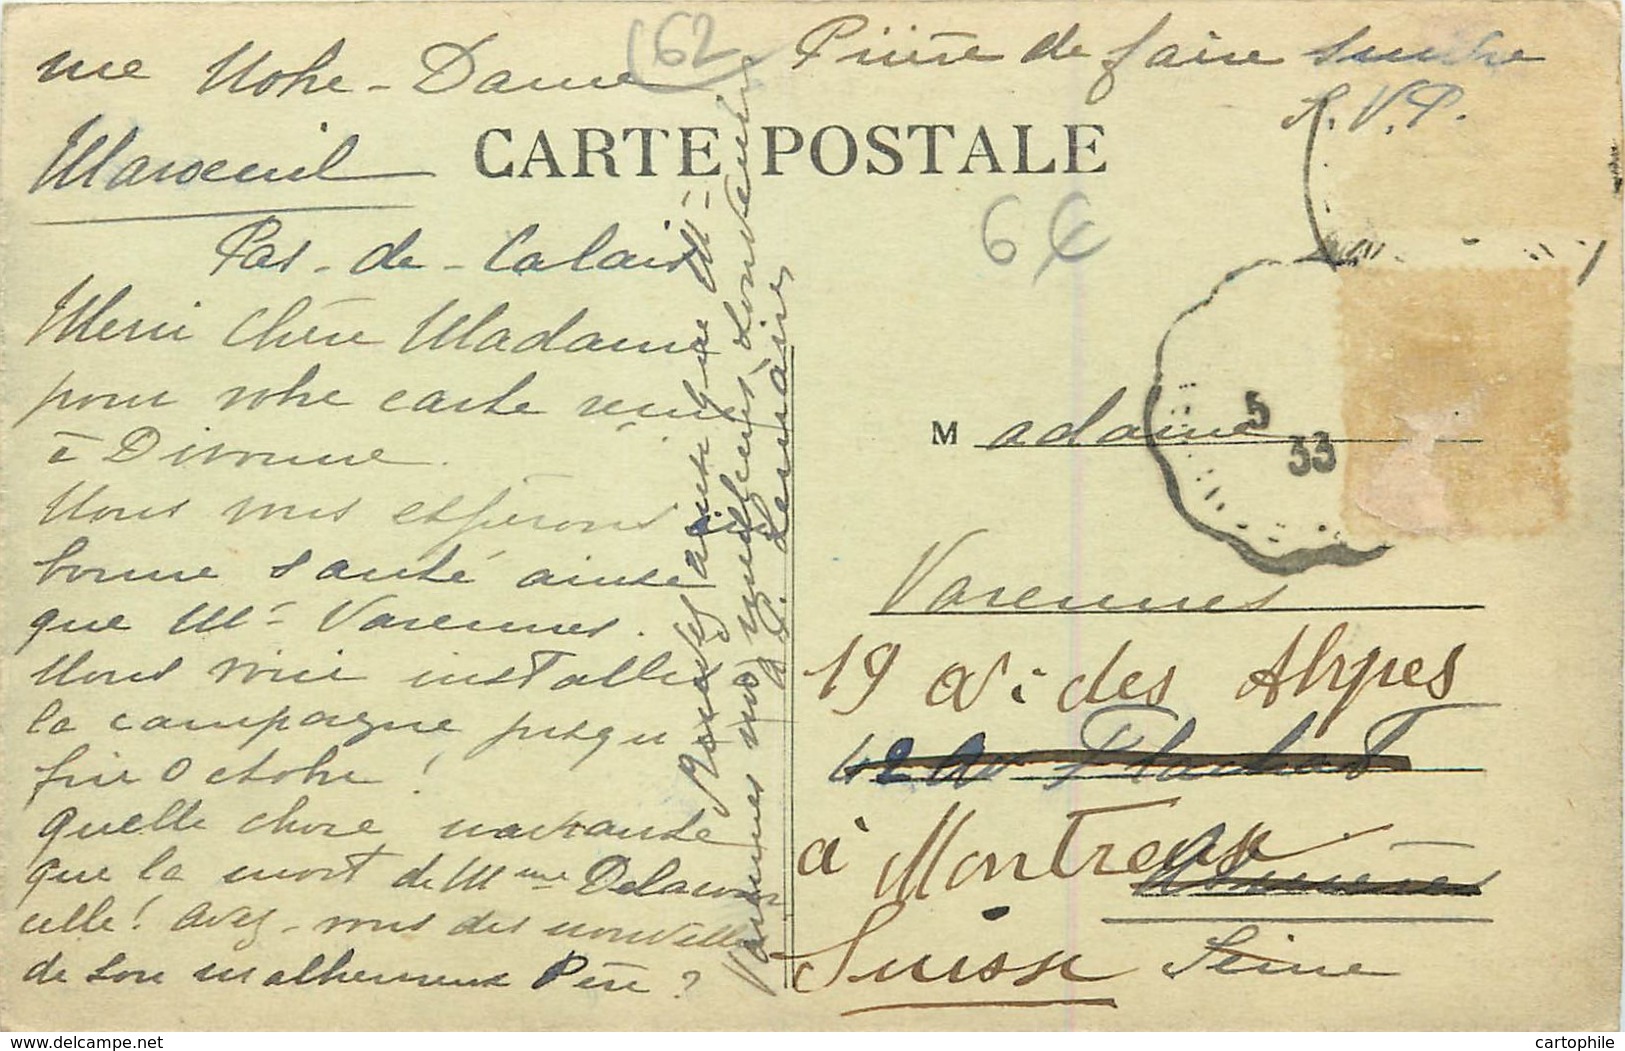 rue Notre-Dame
Maroeuil
Pas-de-Calais
Merci chère Madame
pour votre carte reçue
à Divonne.
Nous vous espérons en
bonne santé ainsi
que Mr Varennes.
Nous voici installés à
la campagne jusqu'à
fin Octobre!
Quelle chose navrante
que la mort de Mme Delacour
celle! avez-vous des nouvelles
de son malheureux Père?
Recevez ainsi que Mr
Varennes nos meilleurs souvenirs
A. Lemaire
62
Prière de faire suivre
S.V.P.
CARTE POSTALE
6€
5
33
Madame
Varennes
19 av. des Alpes
42 Av Flachat
à Montreux
Asnières
Suisse Seine
www.delcampe.net
cartophile